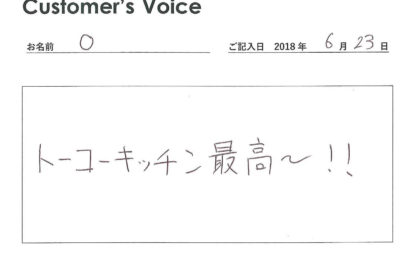 Customer's Voice
お名前 O ご記入日 2018年 6月23日
トーコーキッチン最高〜!!